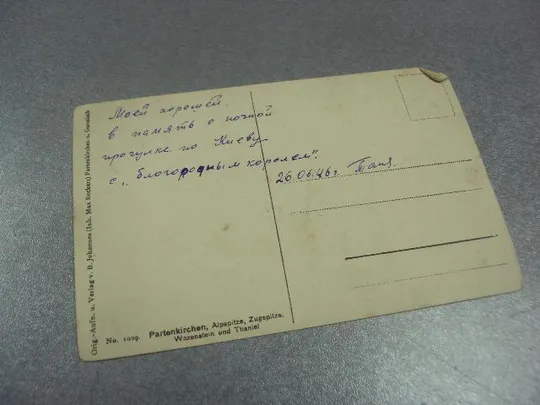 Моей хорошей,
в память о ночной
прогулке по Киеву
с „благородным королем".
26.06.46г. Таня.
Orig.-Aufn. u. Verlag v. B. Johannes (Inh. Max Beckert) Partenkirchen u. Garmisch
No. 1029. Partenkirchen, Alpspitze, Zugspitze,
Waxenstein und Thaniel